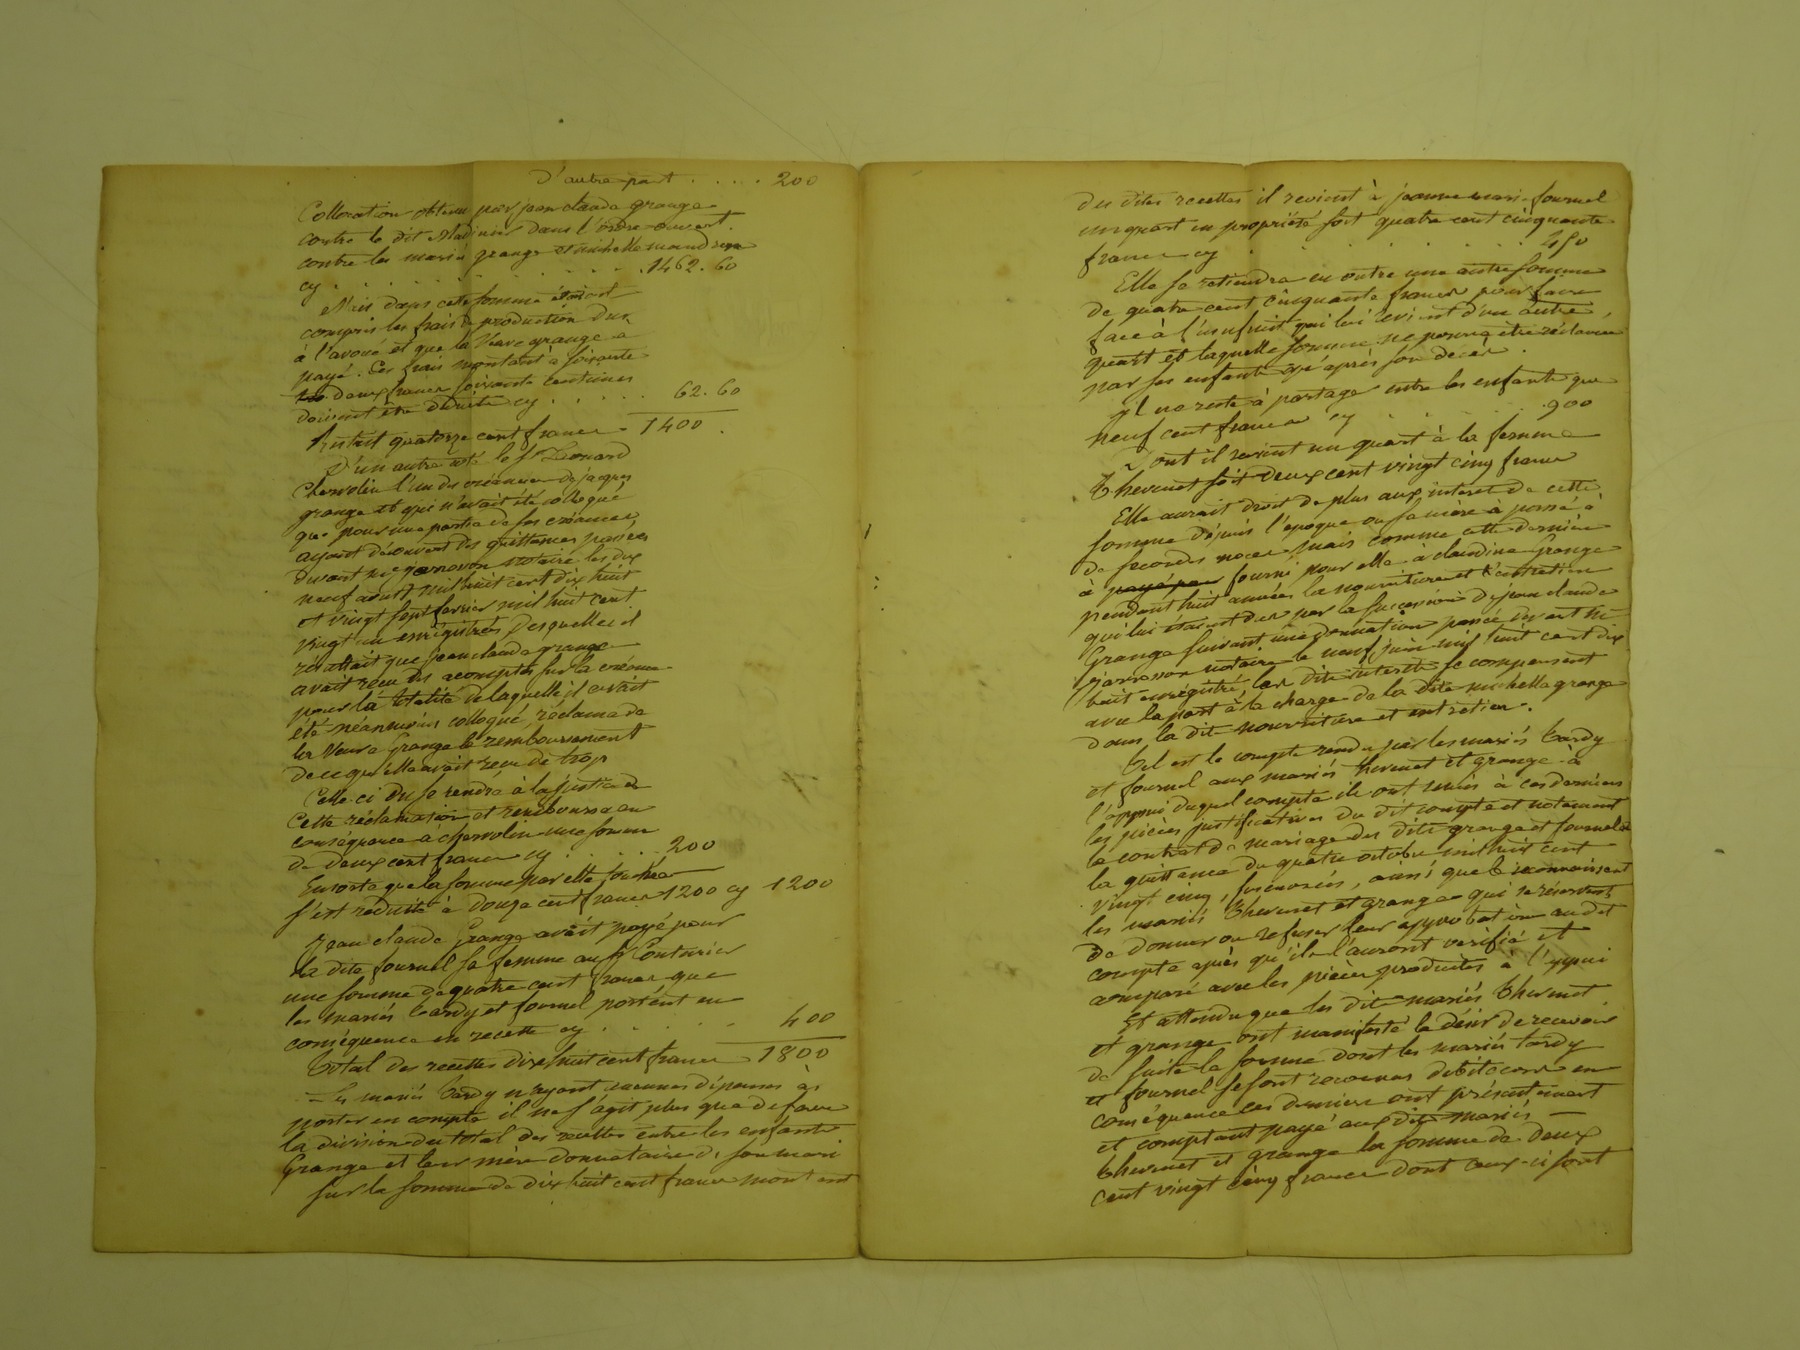 D'autre part . . . . 200
Collocation obtenu par jean claude grange
contre le dit Madinier dans l'ordre ouvert
contre les mariés grange et michelle
cy . . . . . . . . . . 1462.60
Mais dans cette somme étaient
compris les frais de production dus
à l'avoué et que la Veuve grange a
payé. Ces frais montant à soixante
deux francs soixante centimes
doivent être déduits cy . . . . . 62.60
Restait quatorze cent francs - 1400.
D'un autre coté le Sr Léonard
Chervolin l'un des créanciers de jacques
grange et qui n'avait été colloqué
que pour une partie de ses créances,
ayant découvert des quittances passées
devant me notaire les dix
neuf août mil huit cent dix huit
et vingt sept février mil huit cent
vingt un enregistrées desquelles il
résultait que jean claude grange
avait reçu des acomptes sur la créance
pour la totalité de laquelle il avait
été néanmoins colloqué, réclama de
la Veuve Grange le remboursement
de ce qu'elle avait reçu de trop
Celle-ci du se rendre à la justice de
cette réclamation et remboursa en
conséquence à chervolin une somme
de deux cent francs cy . . . . . 200
Ensorte que la somme par elle touchée
s'est réduite à douze cent francs 1200 cy 1200
Jean claude Grange avait payé pour
la dite fournel sa femme au Sr Couturier
une somme de quatre cent francs que
les mariés tardy et fournel portent en
conséquence en recette cy . . . . . . 400
Total des recettes dix huit cent francs - 1800
- Les mariés tardy n'ayant aucunes dépenses à
porter en compte il ne s'agit plus que de faire
la division du total des recettes entre les enfants
Grange et leur mère donnataire de son mari
sur la somme de dix huit cent francs montant
des dites recettes il revient à jeanne marie fournel
un quart en propriété soit quatre cent cinquante
francs cy . . . . . . . . 450
Elle se retiendra en outre une autre somme
de quatre cent cinquante francs pour faire
face à l'usufruit qui lui revient d'un autre
quart et laquelle somme ne pourra être réclamée
par ses enfants qu'après son décès.
Il ne reste à partager entre les enfants que
neuf cent francs cy . . . . . 900
Dont il revient un quart à la femme
Thevenet soit deux cent vingt cinq francs
Elle aurait droit de plus aux intérêts de cette
somme depuis l'époque ou sa mère à passé à
de secondes noces mais comme cette dernière
à payé pour fourni pour elle à claudine Grange
pendant huit années la nourriture et l'entretien
qui lui étaient dus par la succession de jean claude
Grange suivant une donnation passée devant me
notaire le neuf juin mil huit cent dix
huit enregistré, les dits intérêts se compensent
avec la part à la charge de la dite michelle grange
dans la dite nourriture et entretien.
Tel est le compte rendu par les mariés tardy
et fournel aux mariés thevenet et grange à
l'appui duquel compte ils ont remis à ces derniers
les pièces justificatives du dit compte et notament
le contrat de mariage des dits grange et fournel et
la quittance du quatre octobre mil huit cent
vingt cinq, susénoncés, ainsi que le reconnaissent
les mariés thevenet et grange qui se réservent
de donner ou refuser leur approbation au dit
compte après qu'ils l'auront vérifié et
comparé avec les pièces produites à l'appui
Et attendu que les dits mariés thevenet
et grange ont manifesté le désir de recevoir
de suite la somme dont les mariés tardy
et fournel se sont reconnus débiteurs en
conséquence ces derniers ont présentement
et comptant payé aux dits mariés -
thevenet et grange la somme de deux
cent vingt cinq francs dont ceux-ci sont